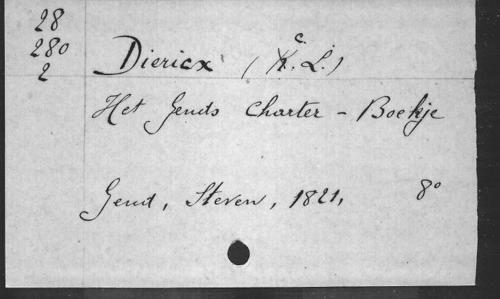 28
280
2
Diericx (C. L.)
Het Gends Charter - Boekje
Gend, Steven, 1821, 8°